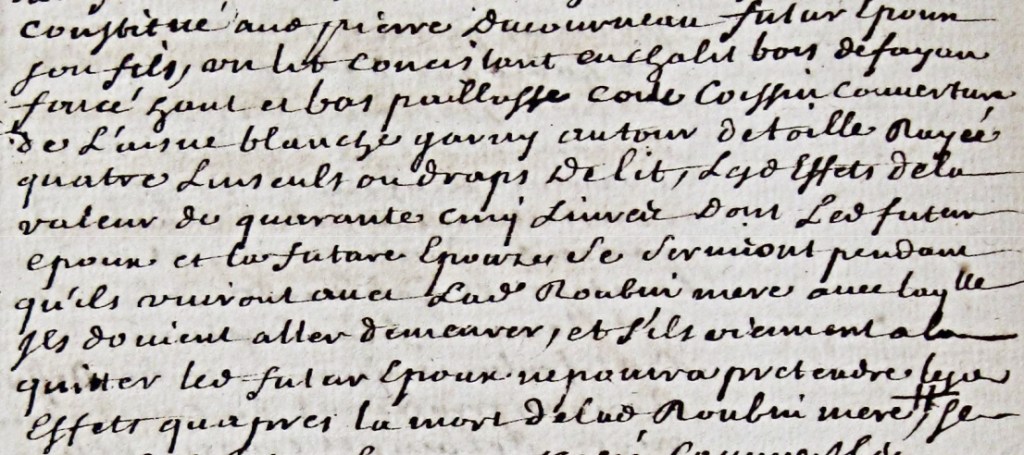 constitué aud pierre Ducourneau futur Epoux
son fils, un lit concistant en chalit bois de fayan
foncé haut et bas paillasse coite Coissin Couverture
de Laisne blanche garny autour de toille Rayée
quatre Linseuls ou draps De lit, Lesd Effets de la
valeur de quarante cinq Livres Dont Led futur
epoux et la future Epouze Se Serviront pendant
qu'ils vivront avec Lad Roubin mere avec laqlle
Ils doivent aller demeurer, et S'ils viennent a la
quitter led futur Epoux ne poura pretendre lesd
Effets qu'apres la mort de lad Roubin mere # Se